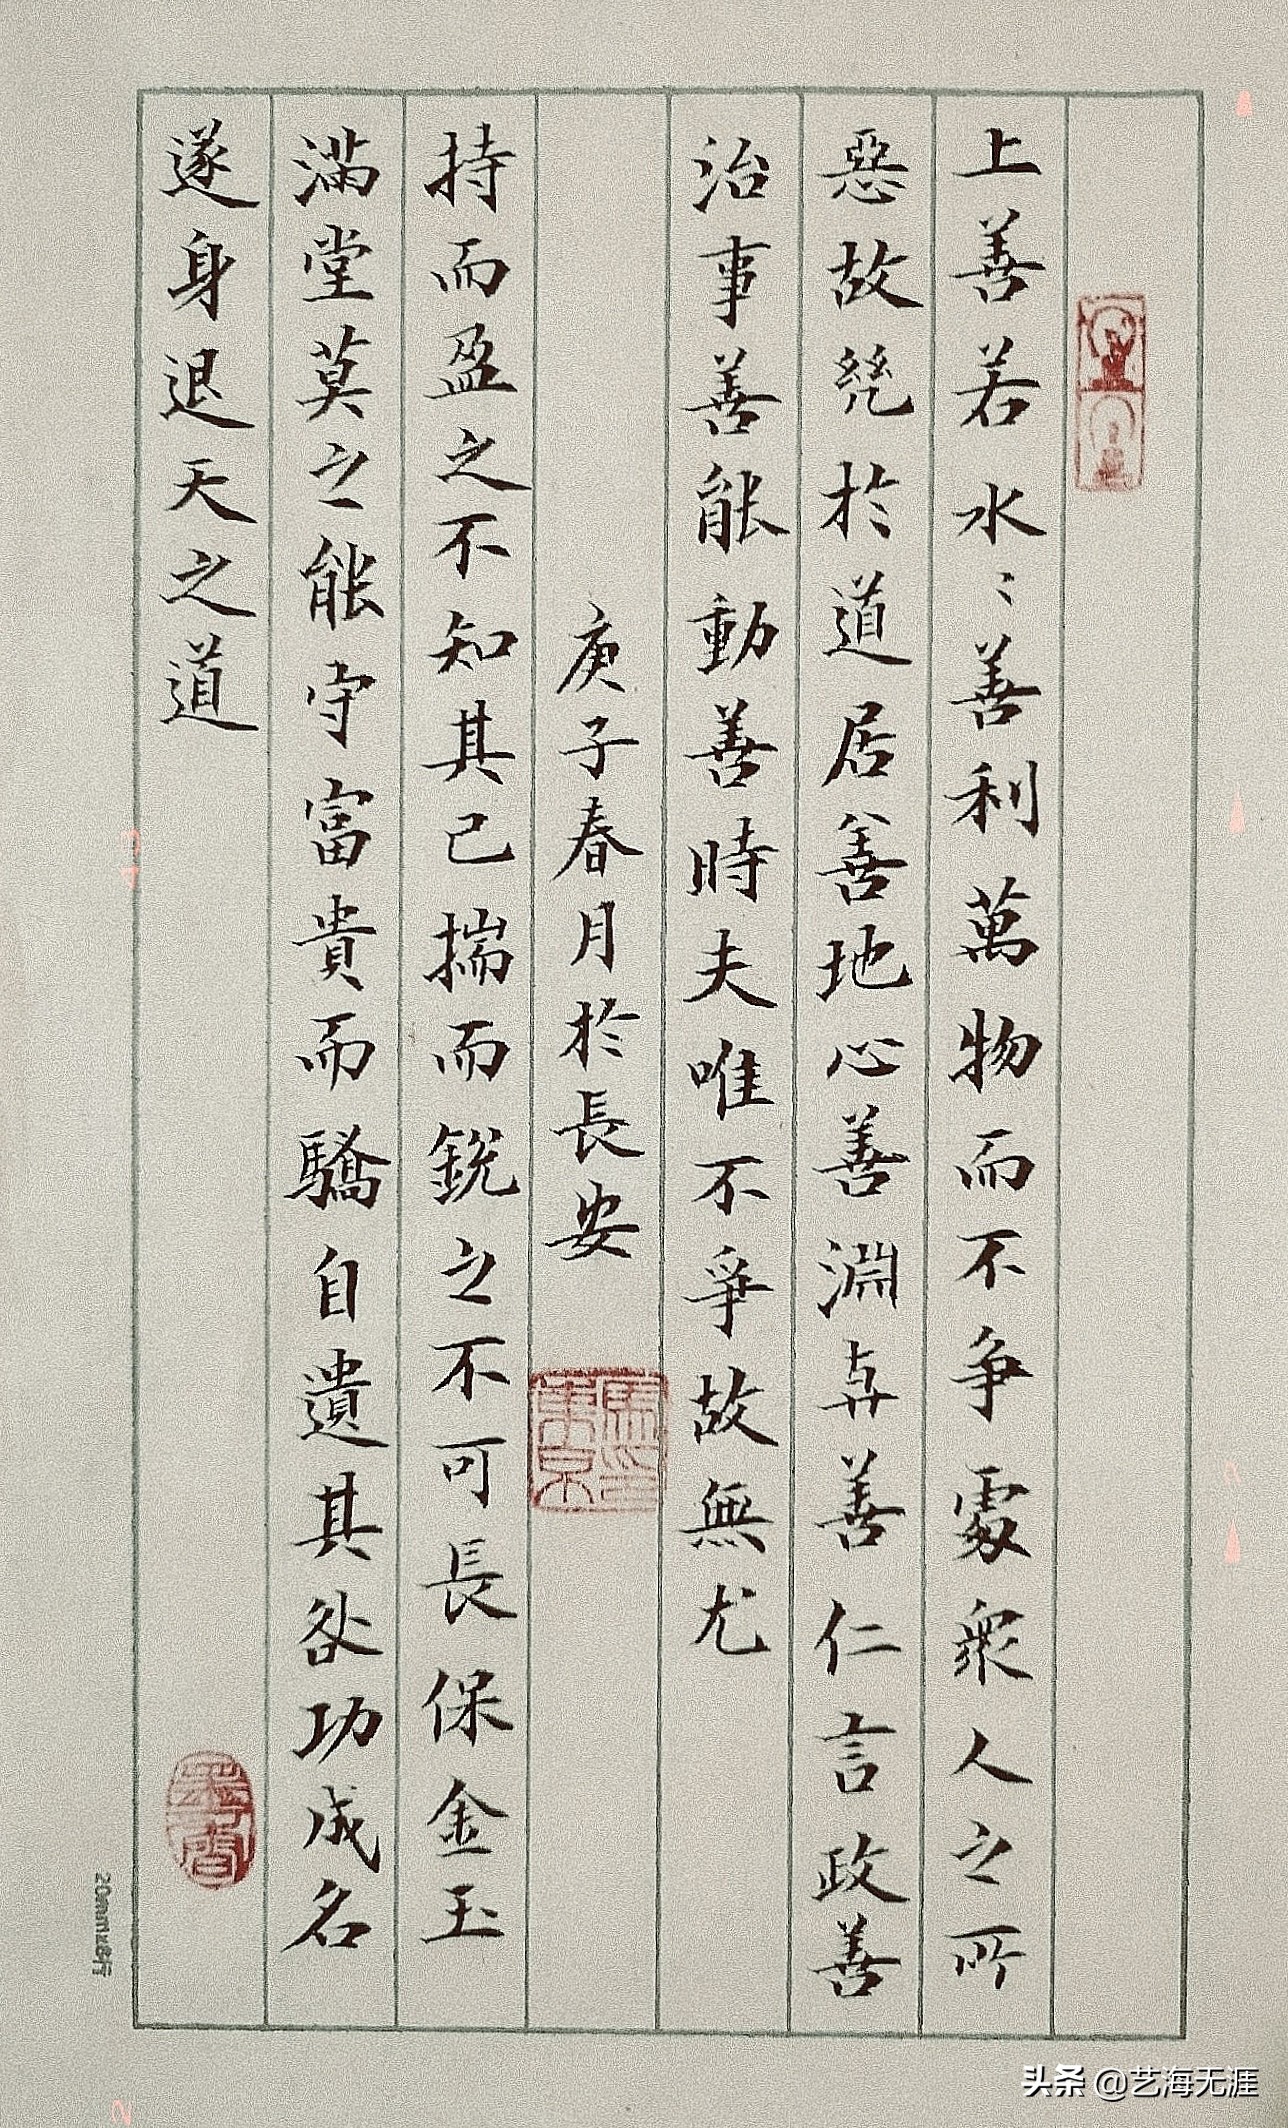 上善若水〻善利萬物而不争處衆人之所
惡故㡬於道居善地心善淵與善仁言政善
治事善能動善時夫唯不爭故無尤
庚子春月於長安
持而盈之不知其已揣而銳之不可長保金玉
滿堂莫之能守富貴而驕自遺其咎功成名
遂身退天之道
墨香
20mmx8行
头条 @艺海无涯